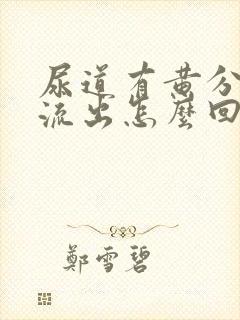 尿道有黄分
流出怎麼回
鄭雪碧